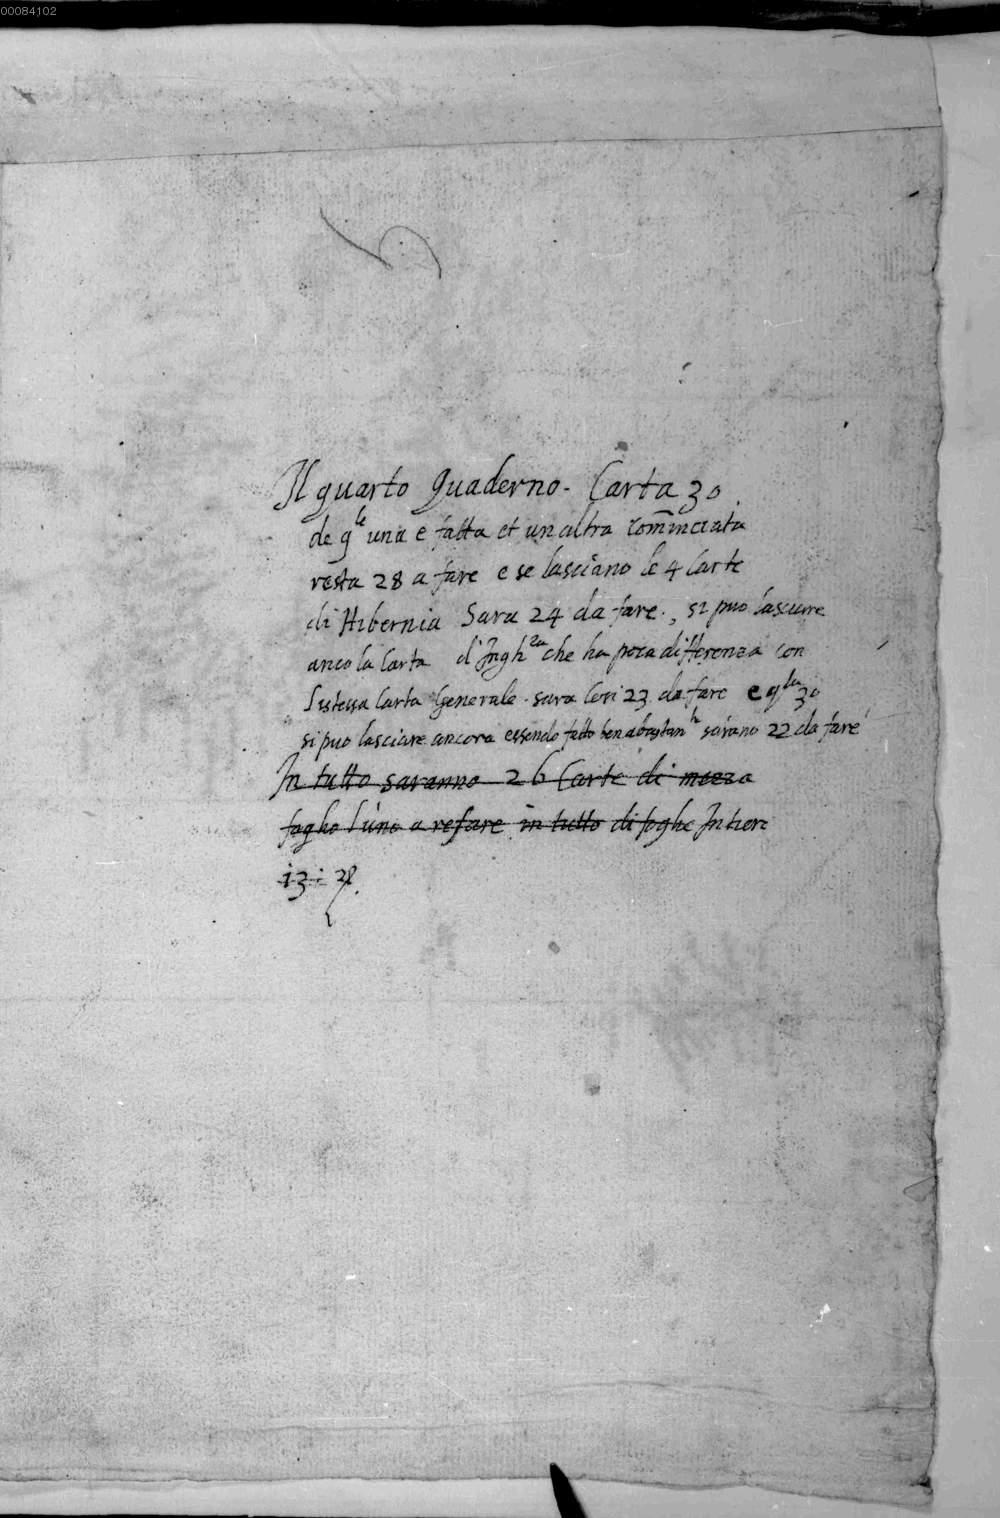 00084102
Il quarto quaderno - Carta 30
de q.le una e fatta et un altra com̄inciata
resta 28 a fare e se lasciano le 4 Carte
di Hibernia Sara 24 da fare., si puo lasciare
anco la Carta d'Ingh.ra che ha poca differenza con
l'istessa Carta Generale. sara Cosi 23 da fare e q.ta 30
si puo lasciare ancora essendo fatto ben abastan sarano 22 da fare
In tutto saranno 26 Carte di mezza
foglio l'uno a refare in tutto di foghe Intiere
i3 i